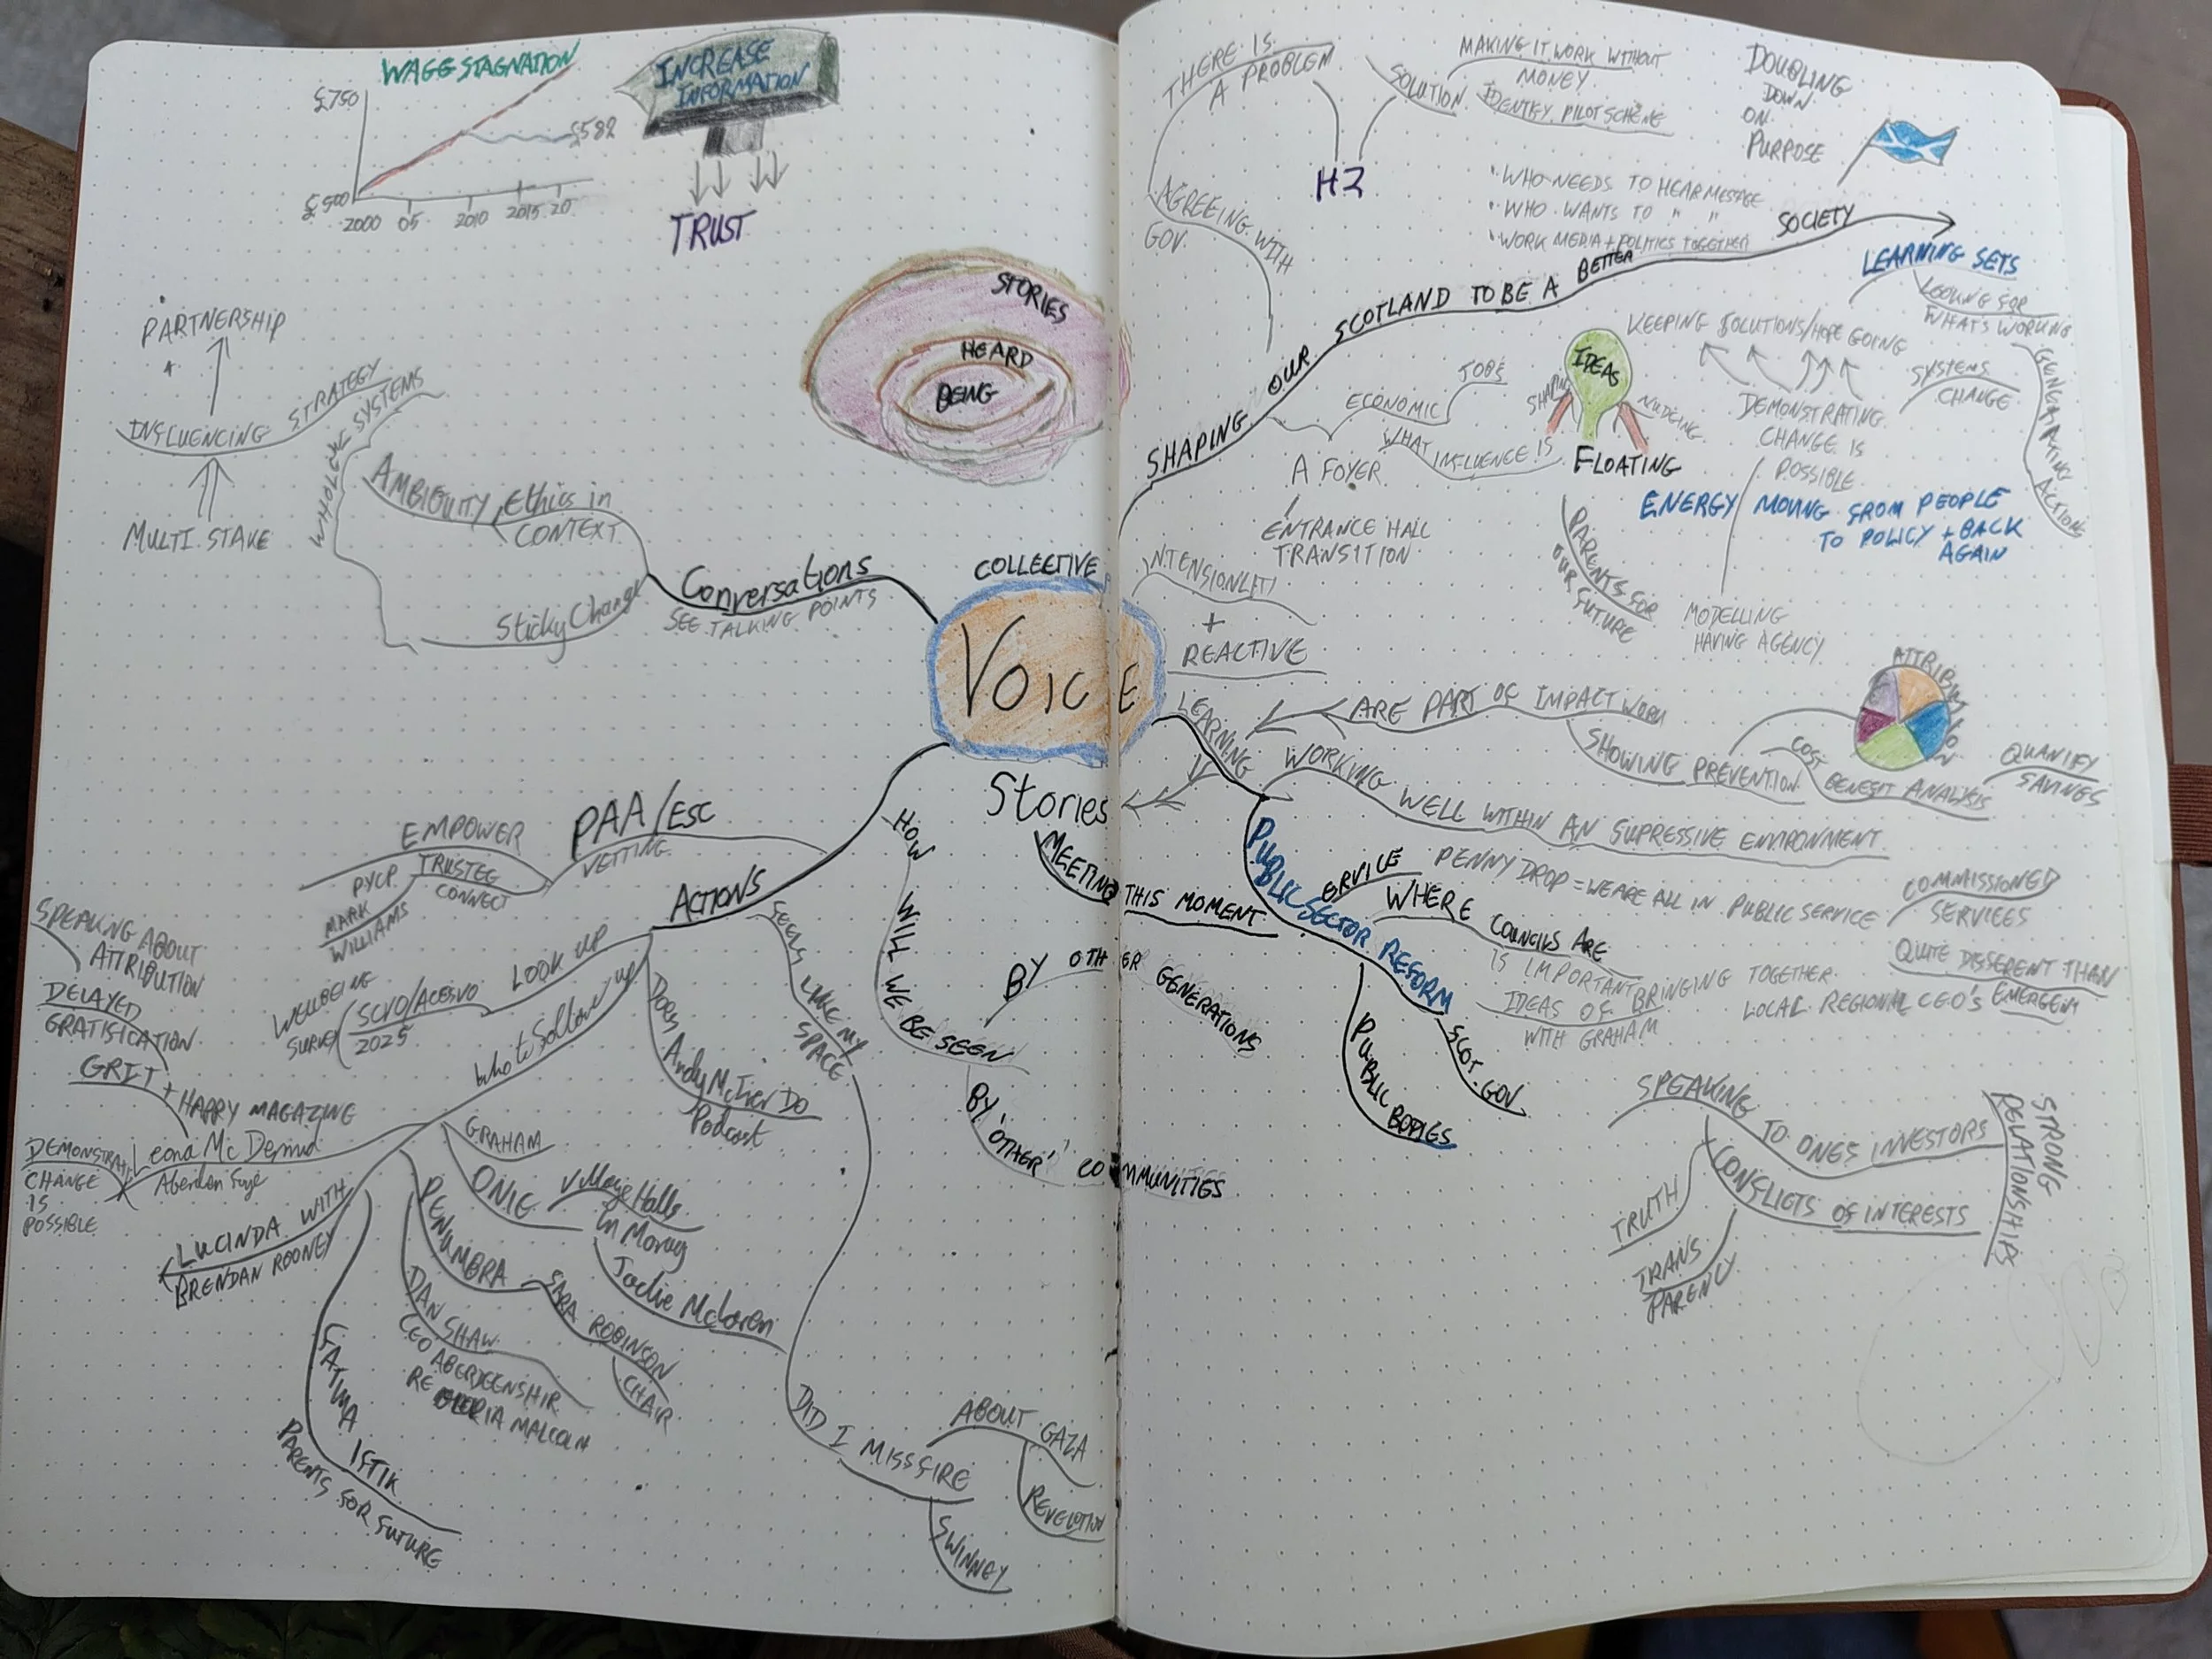 WAGE STAGNATION
£750
£582
£500
2000 05 2010 2015 20
INCREASE
INFORMATION
TRUST
STORIES
HEARD
BEING
PARTNERSHIP
+
INFLUENCING STRATEGY
MULTI. STAKE
WHOLE SYSTEMS
AMBIGUITY
Ethics in
CONTEXT
Sticky Change
Conversations
SEE TALKING POINTS
COLLECTIVE
VOICE
Stories
MEETING THIS MOMENT
HOW WILL WE BE SEEN
BY OTHER GENERATIONS
BY 'OTHER' COMMUNITIES
ACTIONS
PAA/ESC
VETTING
EMPOWER
TRUSTEE
CONNECT
PYCP
MARK
WILLIAMS
LOOK UP
SCVO/ACOSVO
2025
WELLBEING
SURVEY
Who to follow up
SPEAKING ABOUT
ATTRIBUTION
DELAYED
GRATIFICATION
GRIT
+ HAPPY MAGAZINE
Leona McDermid
Aberdeen Foyer
DEMONSTRATE
CHANGE
IS
POSSIBLE
LUCINDA WITH
BRENDAN ROONEY
FATIMA ISTIK
PARENTS FOR FUTURE
DAN SHAW
CEO ABERDEENSHIR
RE
MALCOLM
PENUMBRA
SARA ROBINSON
CHAIR
GRAHAM
ONIE
Village Halls
In Moray
Jackie McLaren
DOES
Andy McIver DO
Podcast
FEELS LIKE MY
SPACE
DID I MISSFIRE
ABOUT GAZA
REVELOTION
SWINNEY
THERE IS
A PROBLEM
SOLUTION
MAKING IT WORK WITHOUT
MONEY
IDENTIFY PILOT SCHEME
AGREEING WITH
GOV.
DOUBLING
DOWN
ON
PURPOSE
"WHO NEEDS TO HEAR MESSAGE
"WHO WANTS TO " "
"WORK MEDIA + POLITICS TOGETHER
SHAPING OUR SCOTLAND TO BE A BETTER SOCIETY
LEARNING SETS
LOOKING FOR
WHAT'S WORKING
GENERATING ACTION
SYSTEMS
CHANGE
KEEPING SOLUTIONS/HOPE GOING
DEMONSTRATING
CHANGE IS
POSSIBLE
MODELLING
HAVING AGENCY
IDEAS
SHAPING
NUDGING
FLOATING
ECONOMIC
JOBS
WHAT INFLUENCE IS
A FOYER
ENTRANCE HALL
TRANSITION
PARENTS FOR
OUR FUTURE
ENERGY MOVING FROM PEOPLE
TO POLICY + BACK
AGAIN
+
REACTIVE
LEARNING
ARE PART OF IMPACT WORK
SHOWING PREVENTION
COST
BENEFIT ANALYSIS
ATTRIBUTION
QUANIFY
SAVINGS
WORKING WELL WITHIN AN SUPRESSIVE ENVIRONMENT
PUBLIC SECTOR REFORM
SERVICE
PENNY DROP = WE ARE ALL IN PUBLIC SERVICE
WHERE COUNCILS ARE
IS IMPORTANT
IDEAS OF BRINGING TOGETHER
WITH GRAHAM
LOCAL REGIONAL CEO'S
COMMISSIONED
SERVICES
QUITE DIFFERENT THAN
SCOT. GOV
PUBLIC BODIES
SPEAKING TO ONES INVESTORS
CONFLICTS OF INTERESTS
TRUTH
TRANS
PARENCY
STRONG
RELATIONSHIPS